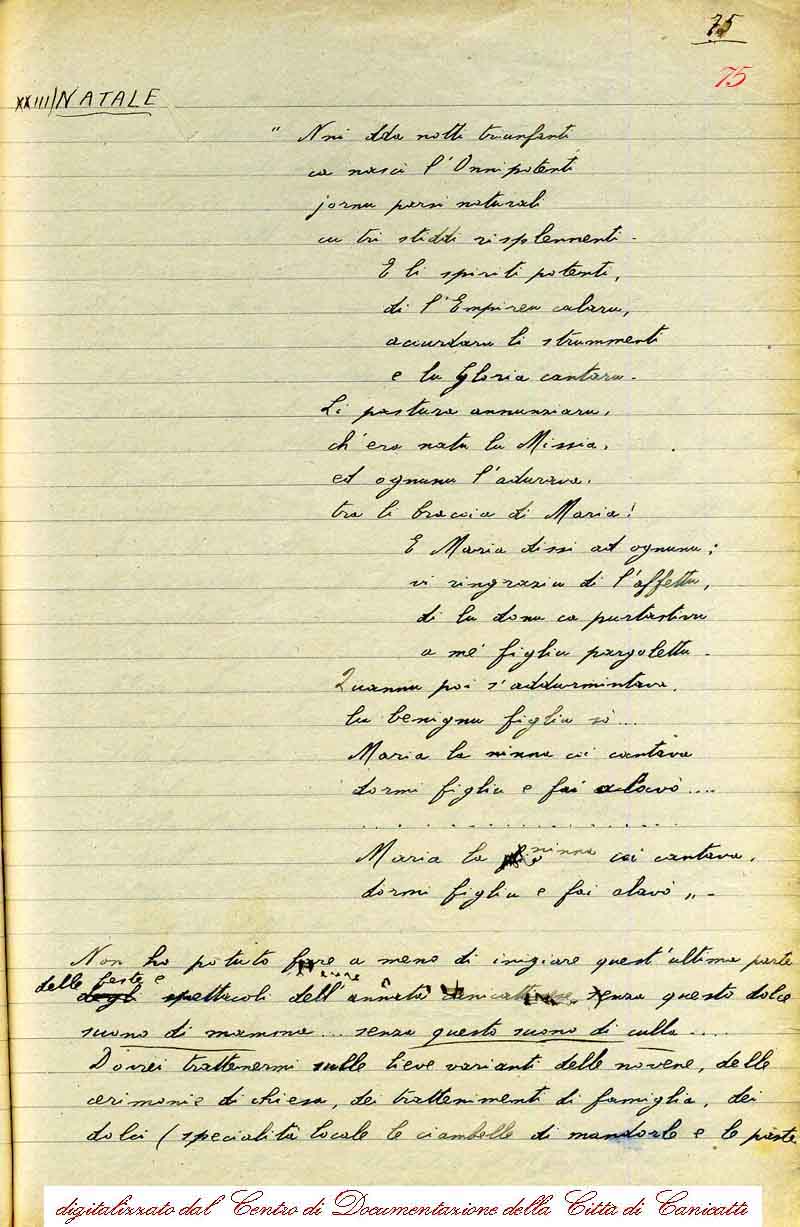 75
75
XXIII) NATALE
" Nni dda notti triunfanti
ca nasci l'Onnipotenti
jornu parsi naturali
cu tri stiddi risplennenti -
E li spiriti potenti,
di l'Empireu calaru,
accurdaru li strummenti
e lu Gloria cantaru -
Li pastura annunziaru,
ch'era natu lu Missia,
ed ognunu l'adurava,
tra li braccia di Maria!
E Maria dissi ad ognunu:
vi ringraziu di l'affettu,
di lu donu ca purtastivu
a mé figliu pargolettu -
Quannu poi s'addurmintava,
lu benignu figliu sò...
Maria la ninna cci cantava
dormi figliu e fai alavò....
. . . . . . . . . . . . . . . . . .
Maria la ninna cci cantava,
dormi figliu e fai alavò „ -
Non ho potuto fare a meno di iniziare quest'ultima parte
delle feste e
degli spettacoli dell'annata senza questo dolce
suono di mamma... senza questo suono di culla....
Dovrei trattenermi sulle lieve varianti delle novene, delle
cerimonie di chiesa, dei trattenimenti di famiglia, dei
dolci (specialità locale le ciambelle di mandorle e le paste
digitalizzato dal Centro di Documentazione della Città di Canicattì